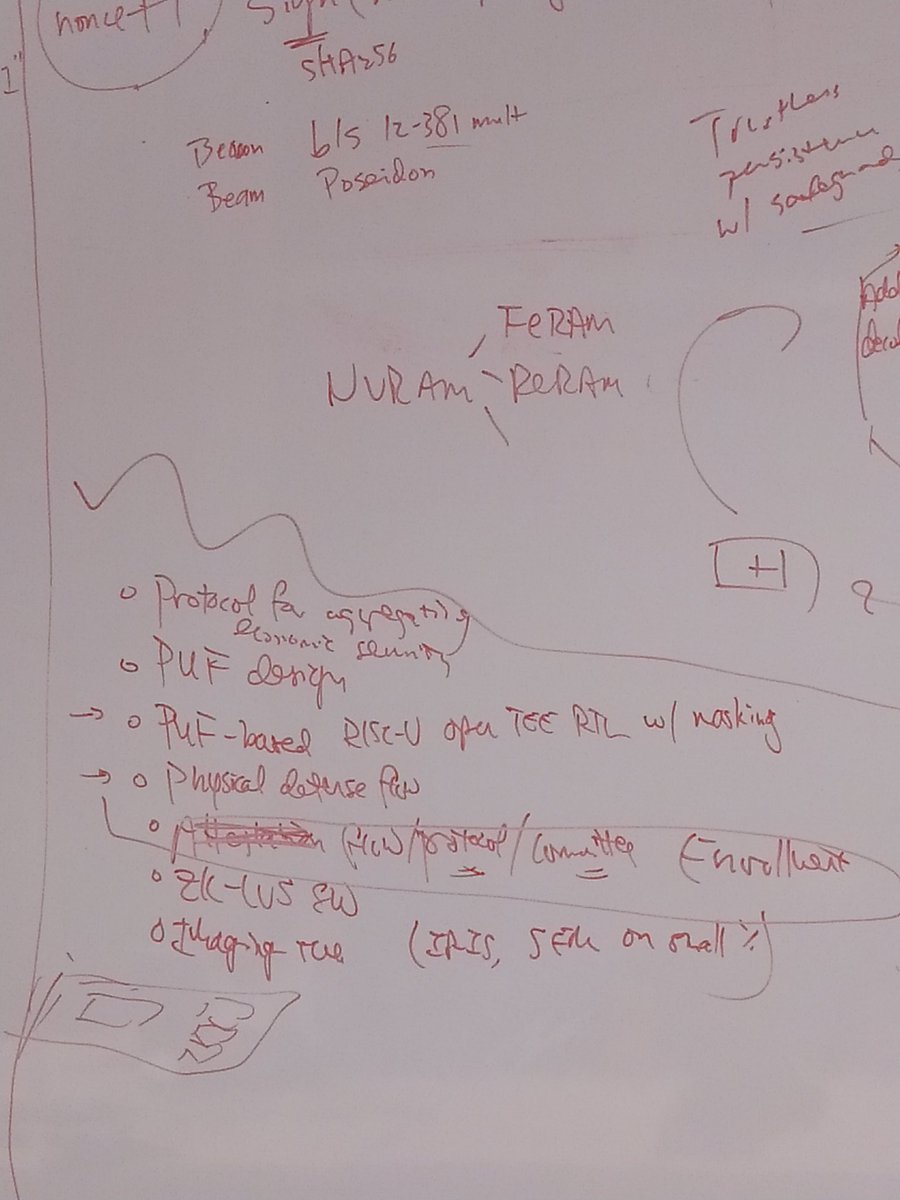 nonce + 1
SHA256
Beacon bls 12-381 mult
Beam Poseidon
Trustless
persistence
w/ safeguard
FeRAM
NVRAM - ReRAM
Add
+
?
o Protocol for aggregating
economic security
o PUF design
→ o PUF-based RISC-V open TEE RTL w/ masking
→ o Physical defense flow
(HW/protocol/Committee Enrollment
ZK-LVS SW
o Imaging (IRIS, SEM on small %)